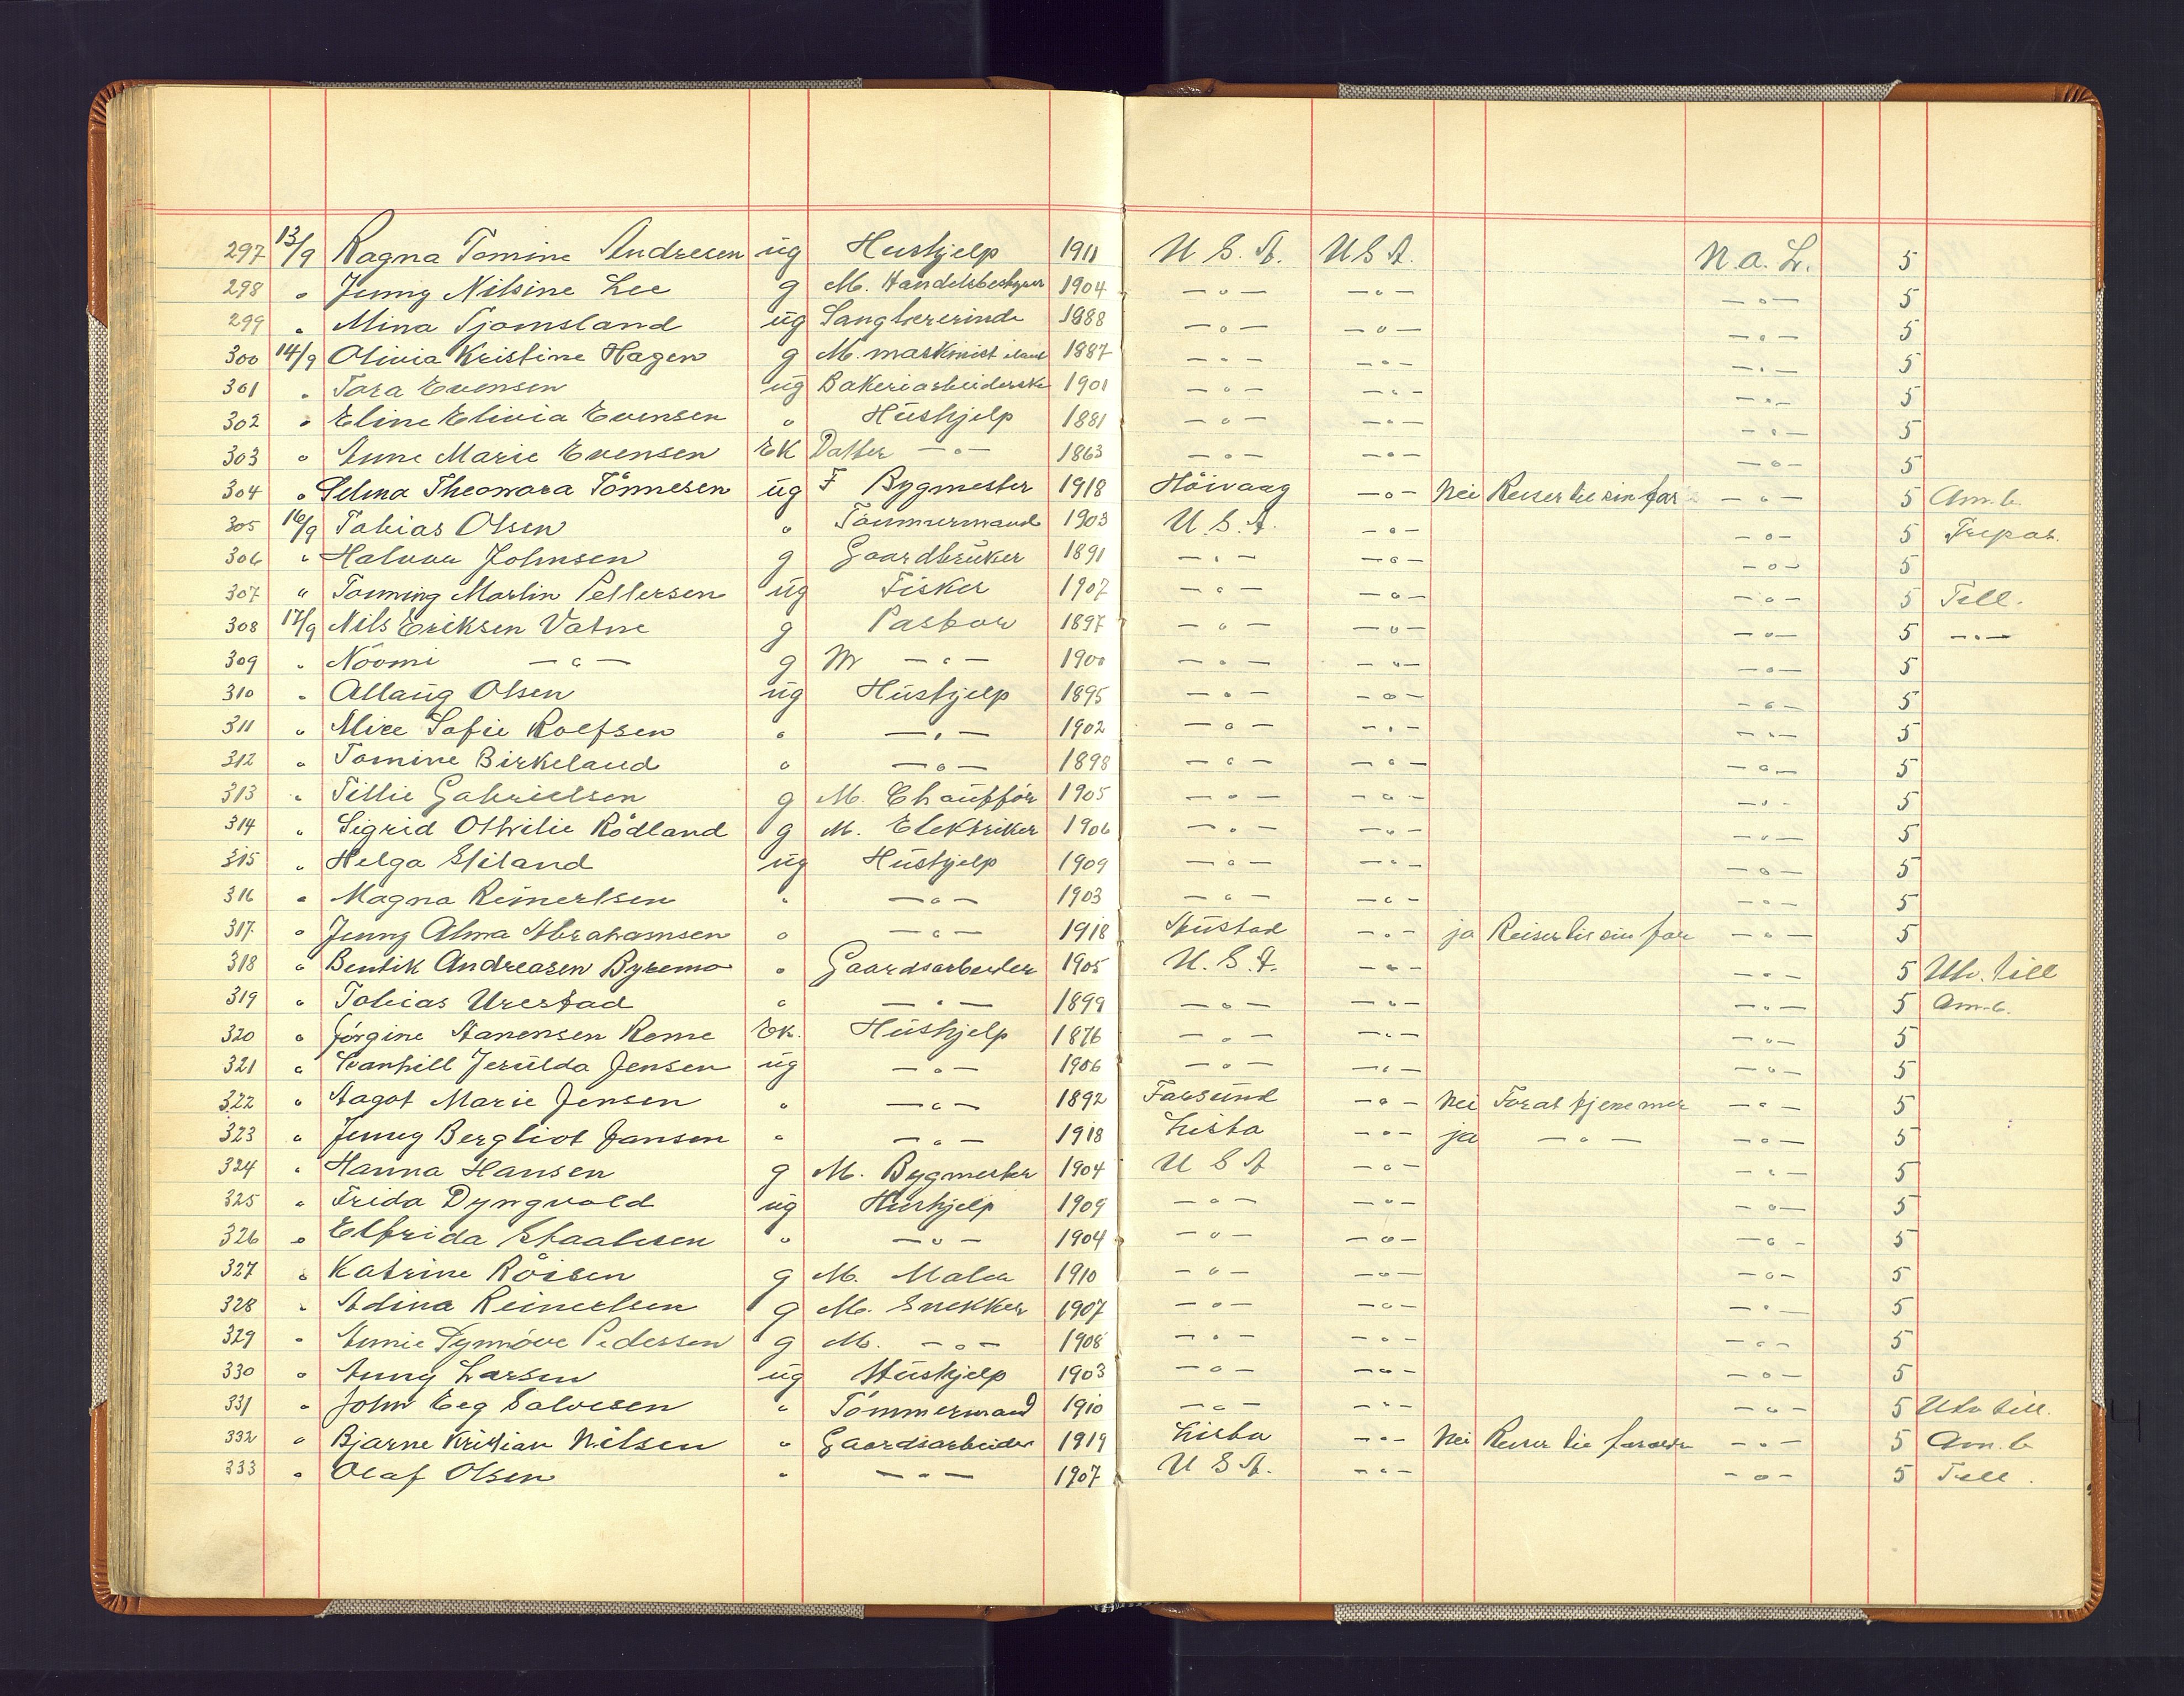 297 13/9 Ragna Tomine Andresen ug Hushjelp 1911 U.S.A. U S A. N.a.L. 5
298 " Jenny Nilsine Lee g M. Handelsbestyrer 1904 —"— —"— —"— 5
299 " Mina Tjomsland ug Sanglærerinde 1888 —"— —"— —"— 5
300 14/9 Olivia Kristine Hagen g M. maskinist 1887 —"— —"— —"— 5
301 " Tora Evensen ug Bakeriarbeiderske 1901 —"— —"— —"— 5
302 " Eline Elivia Evensen " Hushjelp 1881 —"— —"— —"— 5
303 " Anne Marie Evensen Ek Datter —"— 1863 —"— —"— —"— 5
304 " Selma Theonora Tönnesen ug F Bygmester 1918 Höivaag —"— Nei Reiser til sin far —"— 5 Am.b.
305 16/9 Tobias Olsen " Tömmermand 1903 U.S.A. —"— —"— 5 Frepas.
306 " Halvor Johnsen g Gaardbruker 1891 —"— —"— —"— 5
307 " Tønning Martin Pettersen ug Fisker 1907 —"— —"— —"— 5 Till.
308 17/9 Nils Eriksen Vatne g Pastor 1897 —"— —"— —"— 5 —"—
309 " Noomi —"— g M —"— 1900 —"— —"— —"— 5
310 " Allaug Olsen ug Hushjelp 1895 —"— —"— —"— 5
311 " Alice Sofie Rolfsen " —"— 1902 —"— —"— —"— 5
312 " Tomine Birkeland " —"— 1898 —"— —"— —"— 5
313 " Tillie Gabrielsen g M. Chauffør 1905 —"— —"— —"— 5
314 " Sigrid Othilie Rödland g M. Elektriker 1906 —"— —"— —"— 5
315 " Helga Stiland ug Hushjelp 1909 —"— —"— —"— 5
316 " Magna Reinertsen " —"— 1903 —"— —"— —"— 5
317 " Jenny Alma Abrahamsen " —"— 1918 —"— ja Reiser til sin far —"— 5
318 " Bentik Andreasen Byremo " Gaardsarbeider 1905 U.S.A. —"— —"— 5 Utv. till
319 " Tobias Urestad " —"— 1899 —"— —"— —"— 5 Am.b.
320 " Jörgine Stanensen Rome Ek. Hushjelp 1876 —"— —"— —"— 5
321 " Svanhill Jerulda Jensen ug —"— 1906 —"— —"— —"— 5
322 " Aagot Marie Jensen " —"— 1892 Farsund —"— Nei For at tjene mer —"— 5
323 " Jenny Bergliot Jansen " —"— 1918 Lista —"— ja —"— —"— 5
324 " Hanna Hansen g M. Bygmester 1904 U S A —"— —"— 5
325 " Frida Dyngvold ug Hushjelp 1909 —"— —"— —"— 5
326 " Elfrida Staalesen " —"— 1904 —"— —"— —"— 5
327 " Katrine Röisen g M. Maler 1910 —"— —"— —"— 5
328 " Adina Reinertsen g M. Snekker 1907 —"— —"— —"— 5
329 " Annie Synnöve Pedersen g M. —"— 1908 —"— —"— —"— 5
330 " Anny Larsen ug Hushjelp 1903 —"— —"— —"— 5
331 " John Eeg Salvesen " Tömmermand 1910 —"— —"— —"— 5 Utv till.
332 " Bjarne Kristian Nilsen " Gaardsarbeider 1919 Lista —"— Nei Reiser til —"— 5 Am.b
333 " Olaf Olsen " —"— 1907 U S A. —"— —"— 5 Till.